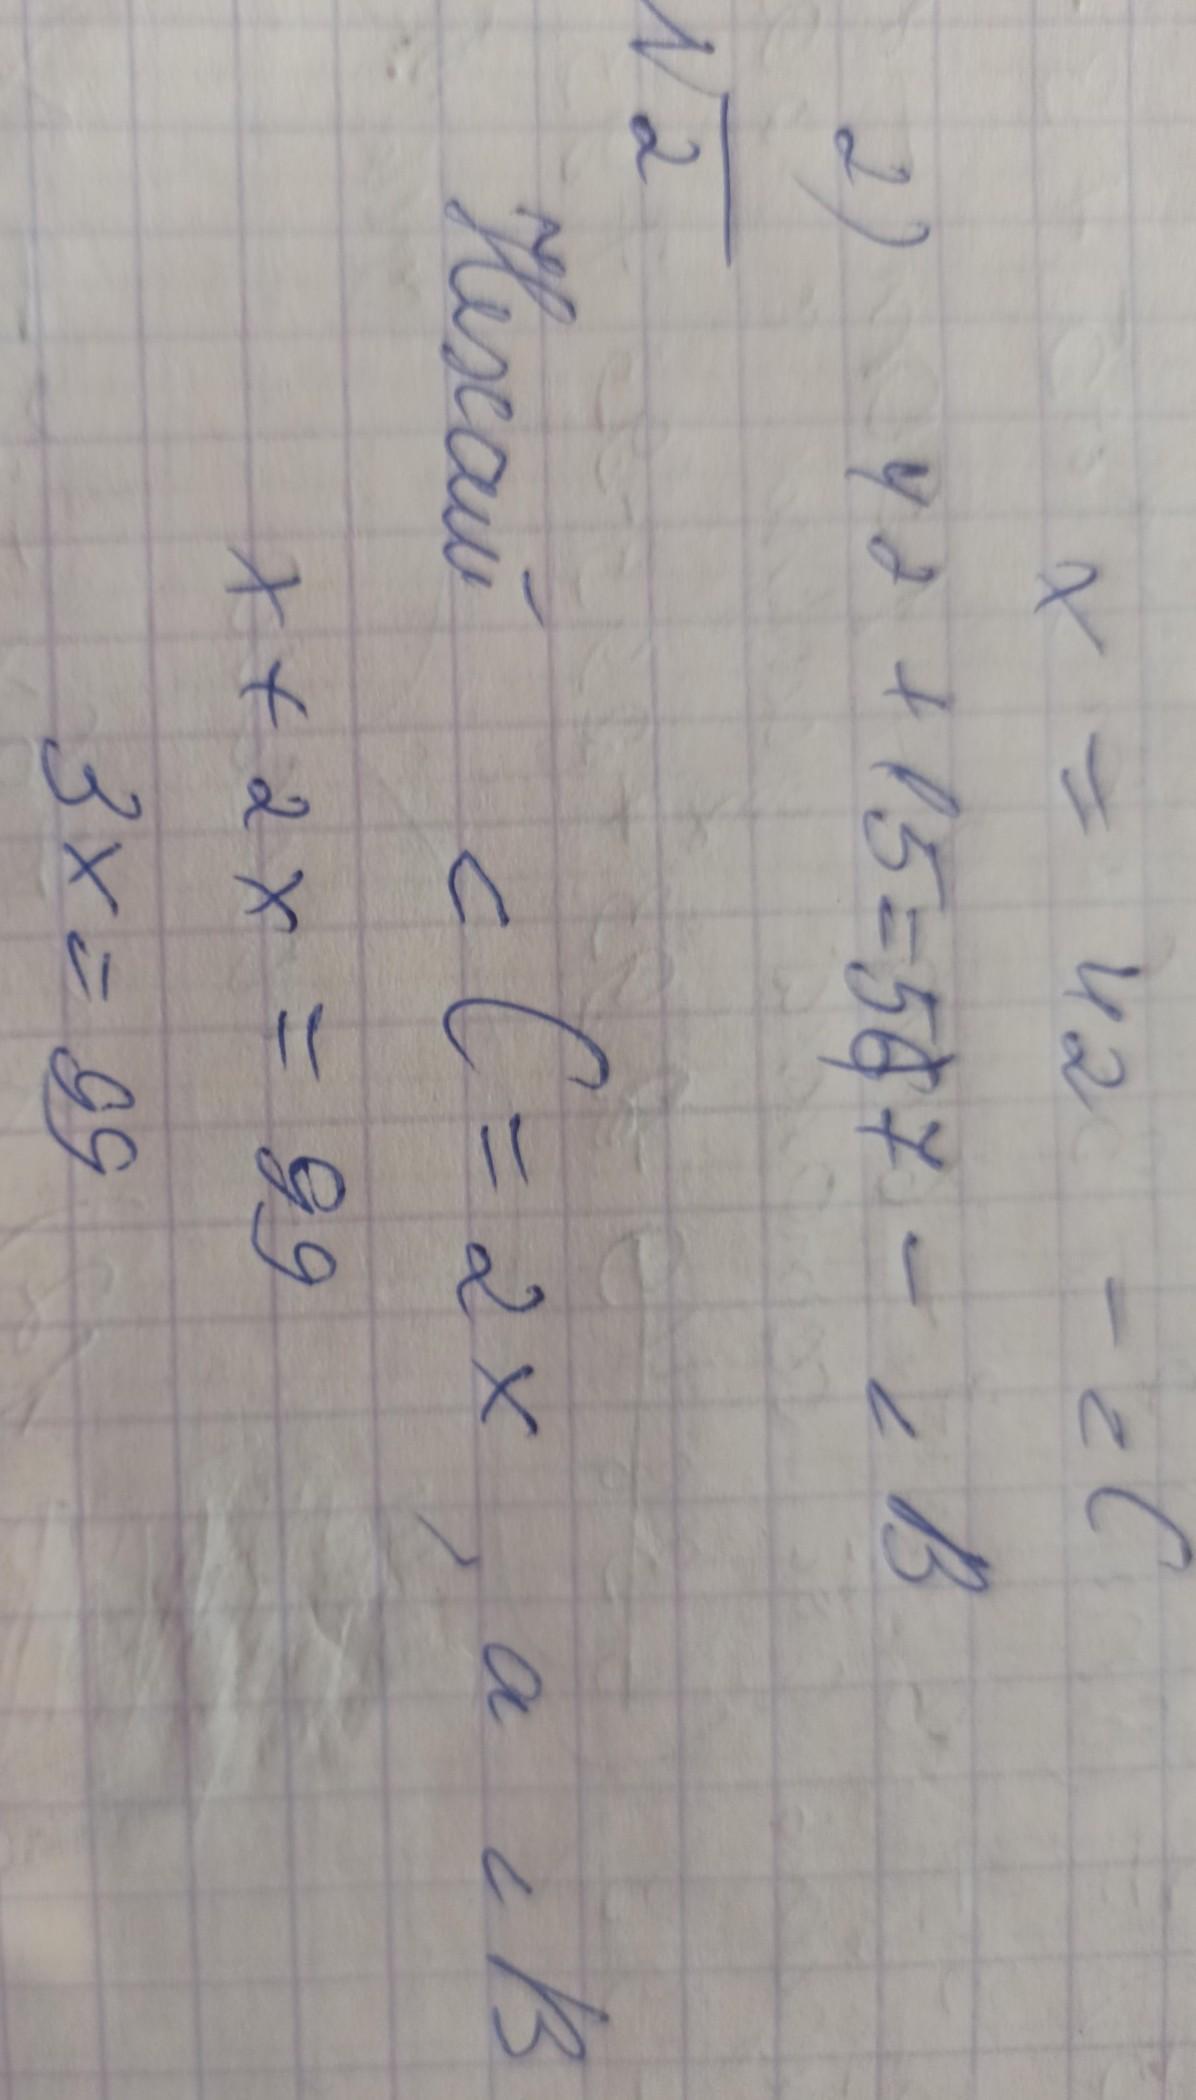 x = 42 - ∠C
2) 42 + 15 = 57 - ∠B
№2
Нехай ∠C = 2x, а ∠B
x + 2x = 99
3x = 99